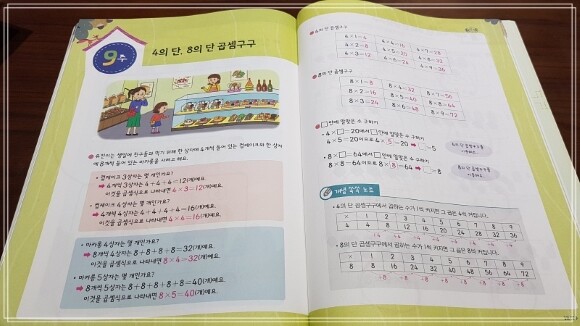 9주
4의 단, 8의 단 곱셈구구
유진이는 생일에 친구들과 먹기 위해 한 상자에 4개씩 들어 있는 컵케이크와 한 상자
에 8개씩 들어 있는 마카롱을 사려고 해요.
• 컵케이크 3상자는 몇 개인가요?
➡ 4개씩 3상자는 4+4+4=12(개)예요.
이것을 곱셈식으로 나타내면 4×3=12(개)예요.
• 컵케이크 4상자는 몇 개인가요?
➡ 4개씩 4상자는 4+4+4+4=16(개)예요.
이것을 곱셈식으로 나타내면 4×4=16(개)예요.
• 마카롱 4상자는 몇 개인가요?
➡ 8개씩 4상자는 8+8+8+8=32(개)예요.
이것을 곱셈식으로 나타내면 8×4=32(개)예요.
• 마카롱 5상자는 몇 개인가요?
➡ 8개씩 5상자는 8+8+8+8+8=40(개)예요.
이것을 곱셈식으로 나타내면 8×5=40(개)예요.
4의 단 곱셈구구
4×1=4 4×4=16 4×7=28
4×2=8 4×5=20 4×8=32
4×3=12 4×6=24 4×9=36
8의 단 곱셈구구
8×1=8 8×4=32 8×7=56
8×2=16 8×5=40 8×8=64
8×3=24 8×6=48 8×9=72
□ 안에 알맞은 수 구하기
• 4×□=20에서 □ 안에 알맞은 수 구하기
4×5=20이므로 4×5=20 ➡ □=5
• 8×□=64에서 □ 안에 알맞은 수 구하기
8×8=64이므로 8×8=64 ➡ □=8
개념 쏙쏙 노트
• 4의 단 곱셈구구에서 곱하는 수가 1씩 커지면 그 곱은 4씩 커집니다.
× 1 2 3 4 5 6 7 8 9
4 4 8 12 16 20 24 28 32 36
+4 +4 +4 +4 +4 +4 +4 +4
• 8의 단 곱셈구구에서 곱하는 수가 1씩 커지면 그 곱은 8씩 커집니다.
× 1 2 3 4 5 6 7 8 9
8 8 16 24 32 40 48 56 64 72
+8 +8 +8 +8 +8 +8 +8 +8